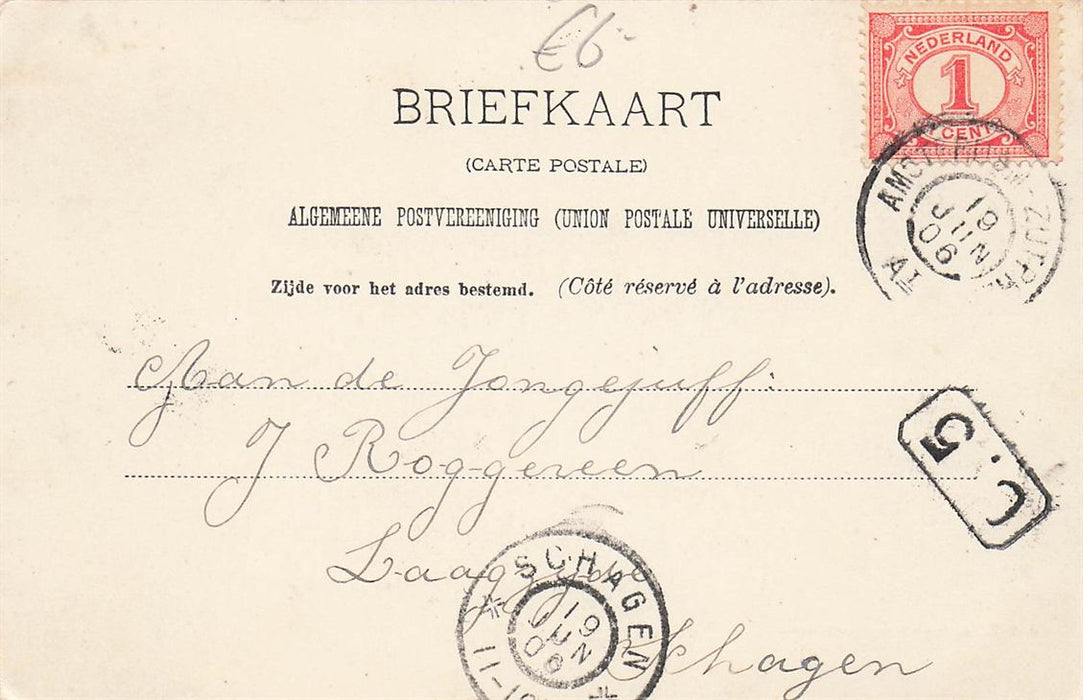 €6-
BRIEFKAART
(CARTE POSTALE)
ALGEMEENE POSTVEREENIGING (UNION POSTALE UNIVERSELLE)
Zijde voor het adres bestemd. (Côté réservé à l'adresse).
NEDERLAND
1
CENT
19
JUN
06
Aan de Jongejuff:
J Roggeveen
Schagen
C.5
SCHAGEN
19
JUN
06